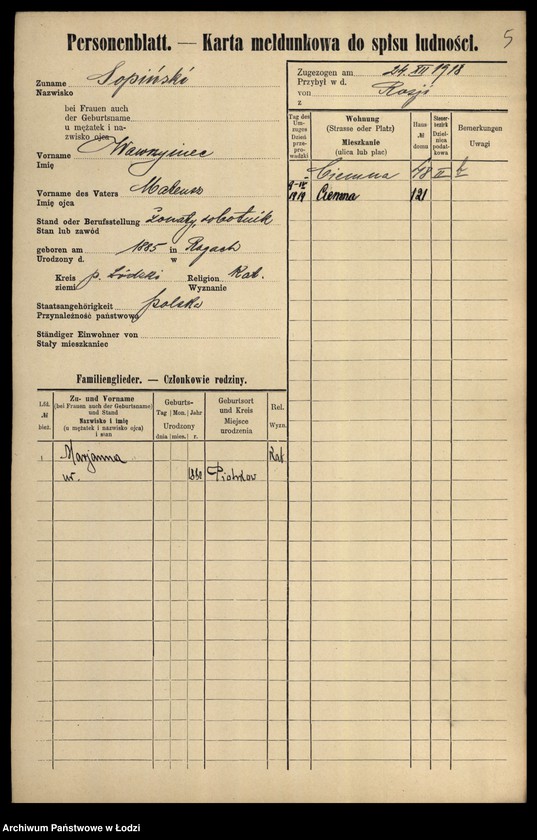 5
Personenblatt. — Karta meldunkowa do spisu ludności.
Zuname
Nazwisko
Sopiński
bei Frauen auch
der Geburtsname
u mężatek i na-
zwisko ojca
Vorname
Imię
Wawrzyniec
Vorname des Vaters
Imię ojca
Mateusz
Stand oder Berufsstellung
Stan lub zawód
żonaty, robotnik
geboren am 1885 in Rogach
Urodzony d. w
Kreis p. Łódzki Religion Kat.
ziemi Wyznanie
Staatsangehörigkeit
Przynależność państwowa
polska
Ständiger Einwohner von
Stały mieszkaniec
Zugezogen am 24. XII 1918
Przybył w d.
von Rosji
z
Tag des
Um-
zuges
Dzień
prze-
prowadzki
Wohnung
(Strasse oder Platz)
Mieszkanie
(ulica lub plac)
Haus
№
domu
Steuer-
bezirk
Dziel-
nica
podat-
kowa
Bemerkungen
Uwagi
Ciemna 48 II
1919 Ciemna 121
Familienglieder. — Członkowie rodziny.
Lfd.
№
bież.
Zu- und Vorname
(bei Frauen auch der Geburtsname)
und Stand
Nazwisko i imię
(u mężatek i nazwisko ojca)
i stan
Geburts-
Tag Mon. Jahr
Urodzony
dnia mies. r.
Geburtsort
und Kreis
Miejsce
urodzenia
Rel.
Wyzn.
1 Marjanna Kat
ur. 1880 Piotrków
Archiwum Państwowe w Łodzi